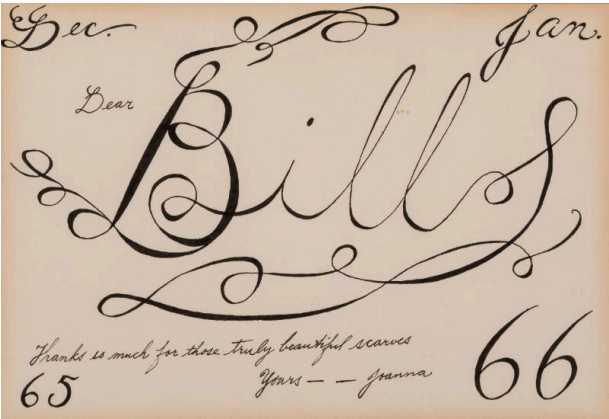 Dec. Jan.
Dear
Bills
Thanks so much for those truly beautiful scarves
Yours — — Joanna
65 66